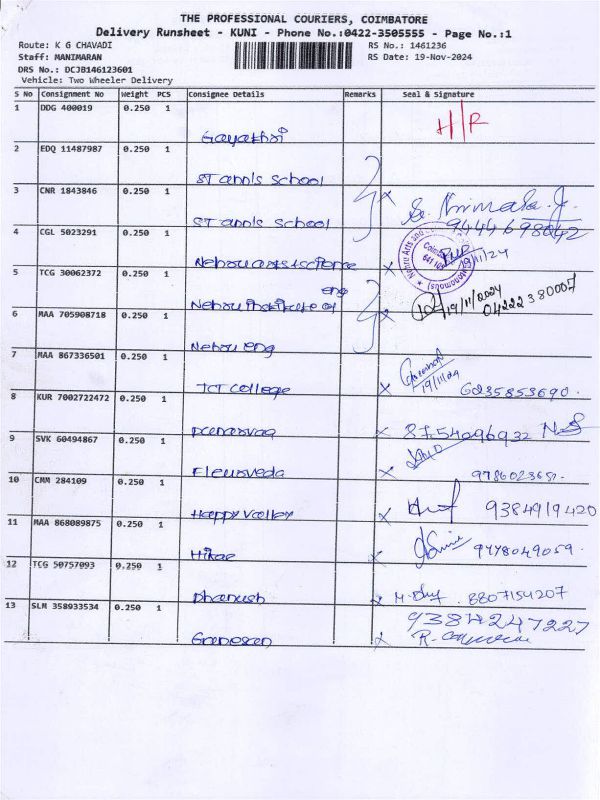 THE PROFESSIONAL COURIERS, COIMBATORE
Delivery Runsheet - KUNI - Phone No.:0422-3505555 - Page No.:1
Route: K G CHAVADI RS No.: 1461236
Staff: MANIMARAN RS Date: 19-Nov-2024
DRS No.: DCJB146123601
Vehicle: Two Wheeler Delivery
S No Consignment No Weight PCS Consignee Details Remarks Seal & Signature
1 DDG 400019 0.250 1
Gayathri H/R
2 EDQ 11487987 0.250 1
ST ann's school
3 CNR 1843846 0.250 1
ST ann's school 9444698042
4 CGL 5023291 0.250 1
Nehru arts & science /11/24
5 TCG 30062372 0.250 1
eng
Nehru institute of 19/11/2024 04222380007
6 MAA 705908718 0.250 1
Nehru eng
7 MAA 867336501 0.250 1
TCT college 19/11/24 6235853690
8 KUR 7002722472 0.250 1
8754096932 NS
9 SVK 60494867 0.250 1
Fleursveda
10 CMM 284109 0.250 1
Happy Valley 9384919420
11 MAA 868089875 0.250 1
Hikae 9778049059
12 TCG 50757093 0.250 1
Dhanush 8807154207
13 SLM 358933534 0.250 1
Ganesan 9384247227